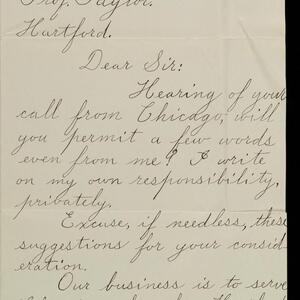 Prof. Taylor.
Hartford.
Dear Sir:
Hearing of your
call from Chicago, will
you permit a few words
even from me? I write
on my own responsibility,
privately.
Excuse, if needless, these
suggestions for your consid-
eration.
Our business is to serve